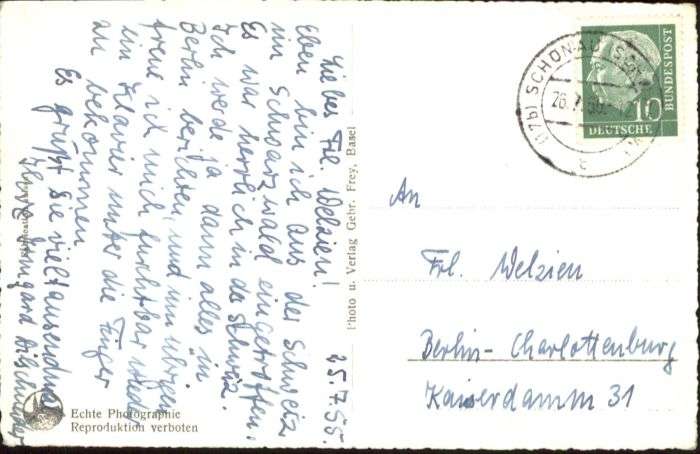 25.7.55.
Liebes Frl. Welzien!
Eben bin ich aus der Schweiz
im Schwarzwald eingetroffen.
Es war herrlich in der Schweiz.
Ich werde ja dann alles in
Berlin berichten, und im übrigen
freue ich mich furchtbar wieder
ein Klavier unter die Finger
zu bekommen
Es grüßt Sie vieltausendmal
Ihre Irmgard
Photo u. Verlag Gebr. Frey, Basel
Echte Photographie
Reproduktion verboten
(17b) SCHÖNAU (SCHW
26.7.55
DEUTSCHE
BUNDESPOST
10
An
Frl. Welzien
Berlin-Charlottenburg
Kaiserdamm 31